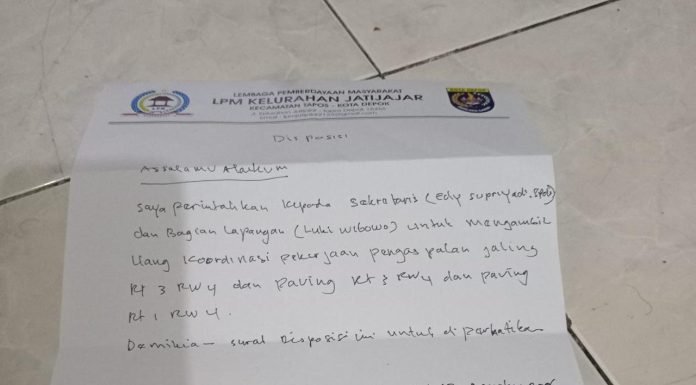 LEMBAGA PEMBERDAYAAN MASYARAKAT
LPM KELURAHAN JATIJAJAR
KECAMATAN TAPOS - KOTA DEPOK
Disposisi
Assalamu Alaikum
Saya perintahkan kepada Sekretaris (Edy Supriyadi.
dan Bagian Lapangan (Luki Wibowo) untuk mengambil
Uang Koordinasi pekerjaan pengaspalan jaling
Rt 3 RW 4 dan paving Rt 3 RW 4 dan paving
Rt 1 RW 4.
Demikia surat Disposisi ini untuk diperhatikan